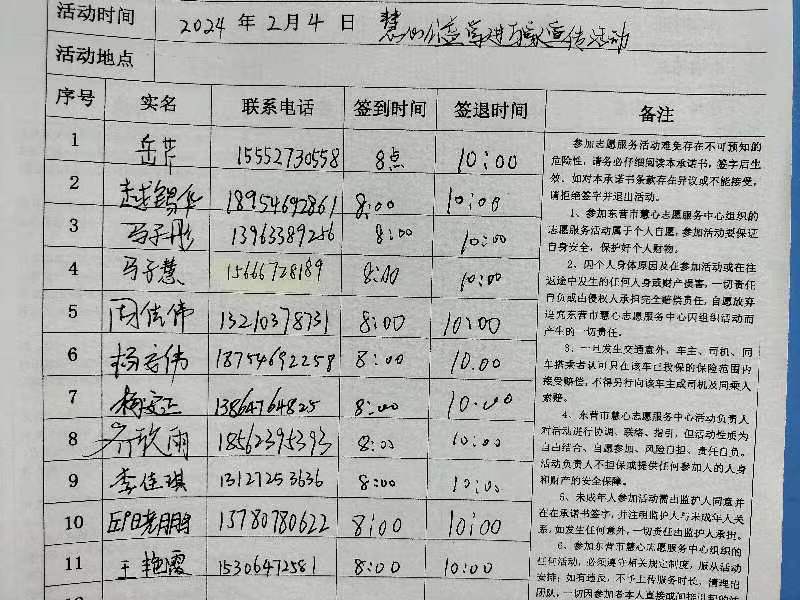 活动时间 2024 年 2 月 4 日
活动地点
序号 实名 联系电话 签到时间 签退时间 备注
1 岳芹 15552730558 8点 10:00
2 赵锡华 18954692861 8:00 10:00
3 马子彤 13963389256 8:00 10:00
4 马子慧 15666728189 8:00 10:00
5 周佳伟 13210378731 8:00 10:00
6 杨安伟 18754692258 8:00 10.00
7 杨安正 13864764825 8:00 10:00
8 齐歆雨 18562395393 8:00 10:00
9 李佳琪 13127253636 8:00 10:00
10 邱晓鹏 13780780622 8:00 10:00
11 王艳霞 15306472581 8:00 10:00
参加志愿服务活动难免存在不可预知的
危险性,请务必仔细阅读本承诺书,签字后生
效。如对本承诺书条款存在异议或不能接受,
请拒绝签字并退出活动。
1、参加东营市慧心志愿服务中心组织的
志愿服务活动属于个人自愿,参加活动要保证
自身安全,保护好个人财物。
2、因个人身体原因及在参加活动或在往
返途中发生的任何人身或财产损害,一切责任
自负或由侵权人承担完全赔偿责任,自愿放弃
追究东营市慧心志愿服务中心因组织活动而
产生的一切责任。
3、一旦发生交通意外,车主、司机、同
车搭乘者认可只在该车已投保的保险范围内
接受赔偿,不得另行向该车主或司机及同乘人
索赔。
4、东营市慧心志愿服务中心活动负责人
对活动进行协调、联络、指引,但活动性质为
自由结合、自愿参加、风险自担、责任自负。
活动负责人不担保或提供任何参加人的人身
和财产的安全保障。
5、未成年人参加活动需出监护人同意并
在在承诺书签字,并注租监护人与未成年人关
系,如发生任何意外,一切责任由监护人承担。
6、参加东营市慧心志愿服务中心组织的
任何活动,必须遵守相关规定制度,服从活动
安排;如有违反,不予上传服务时长,清理出
团队,一切因参加者本人直接或间接引起的法